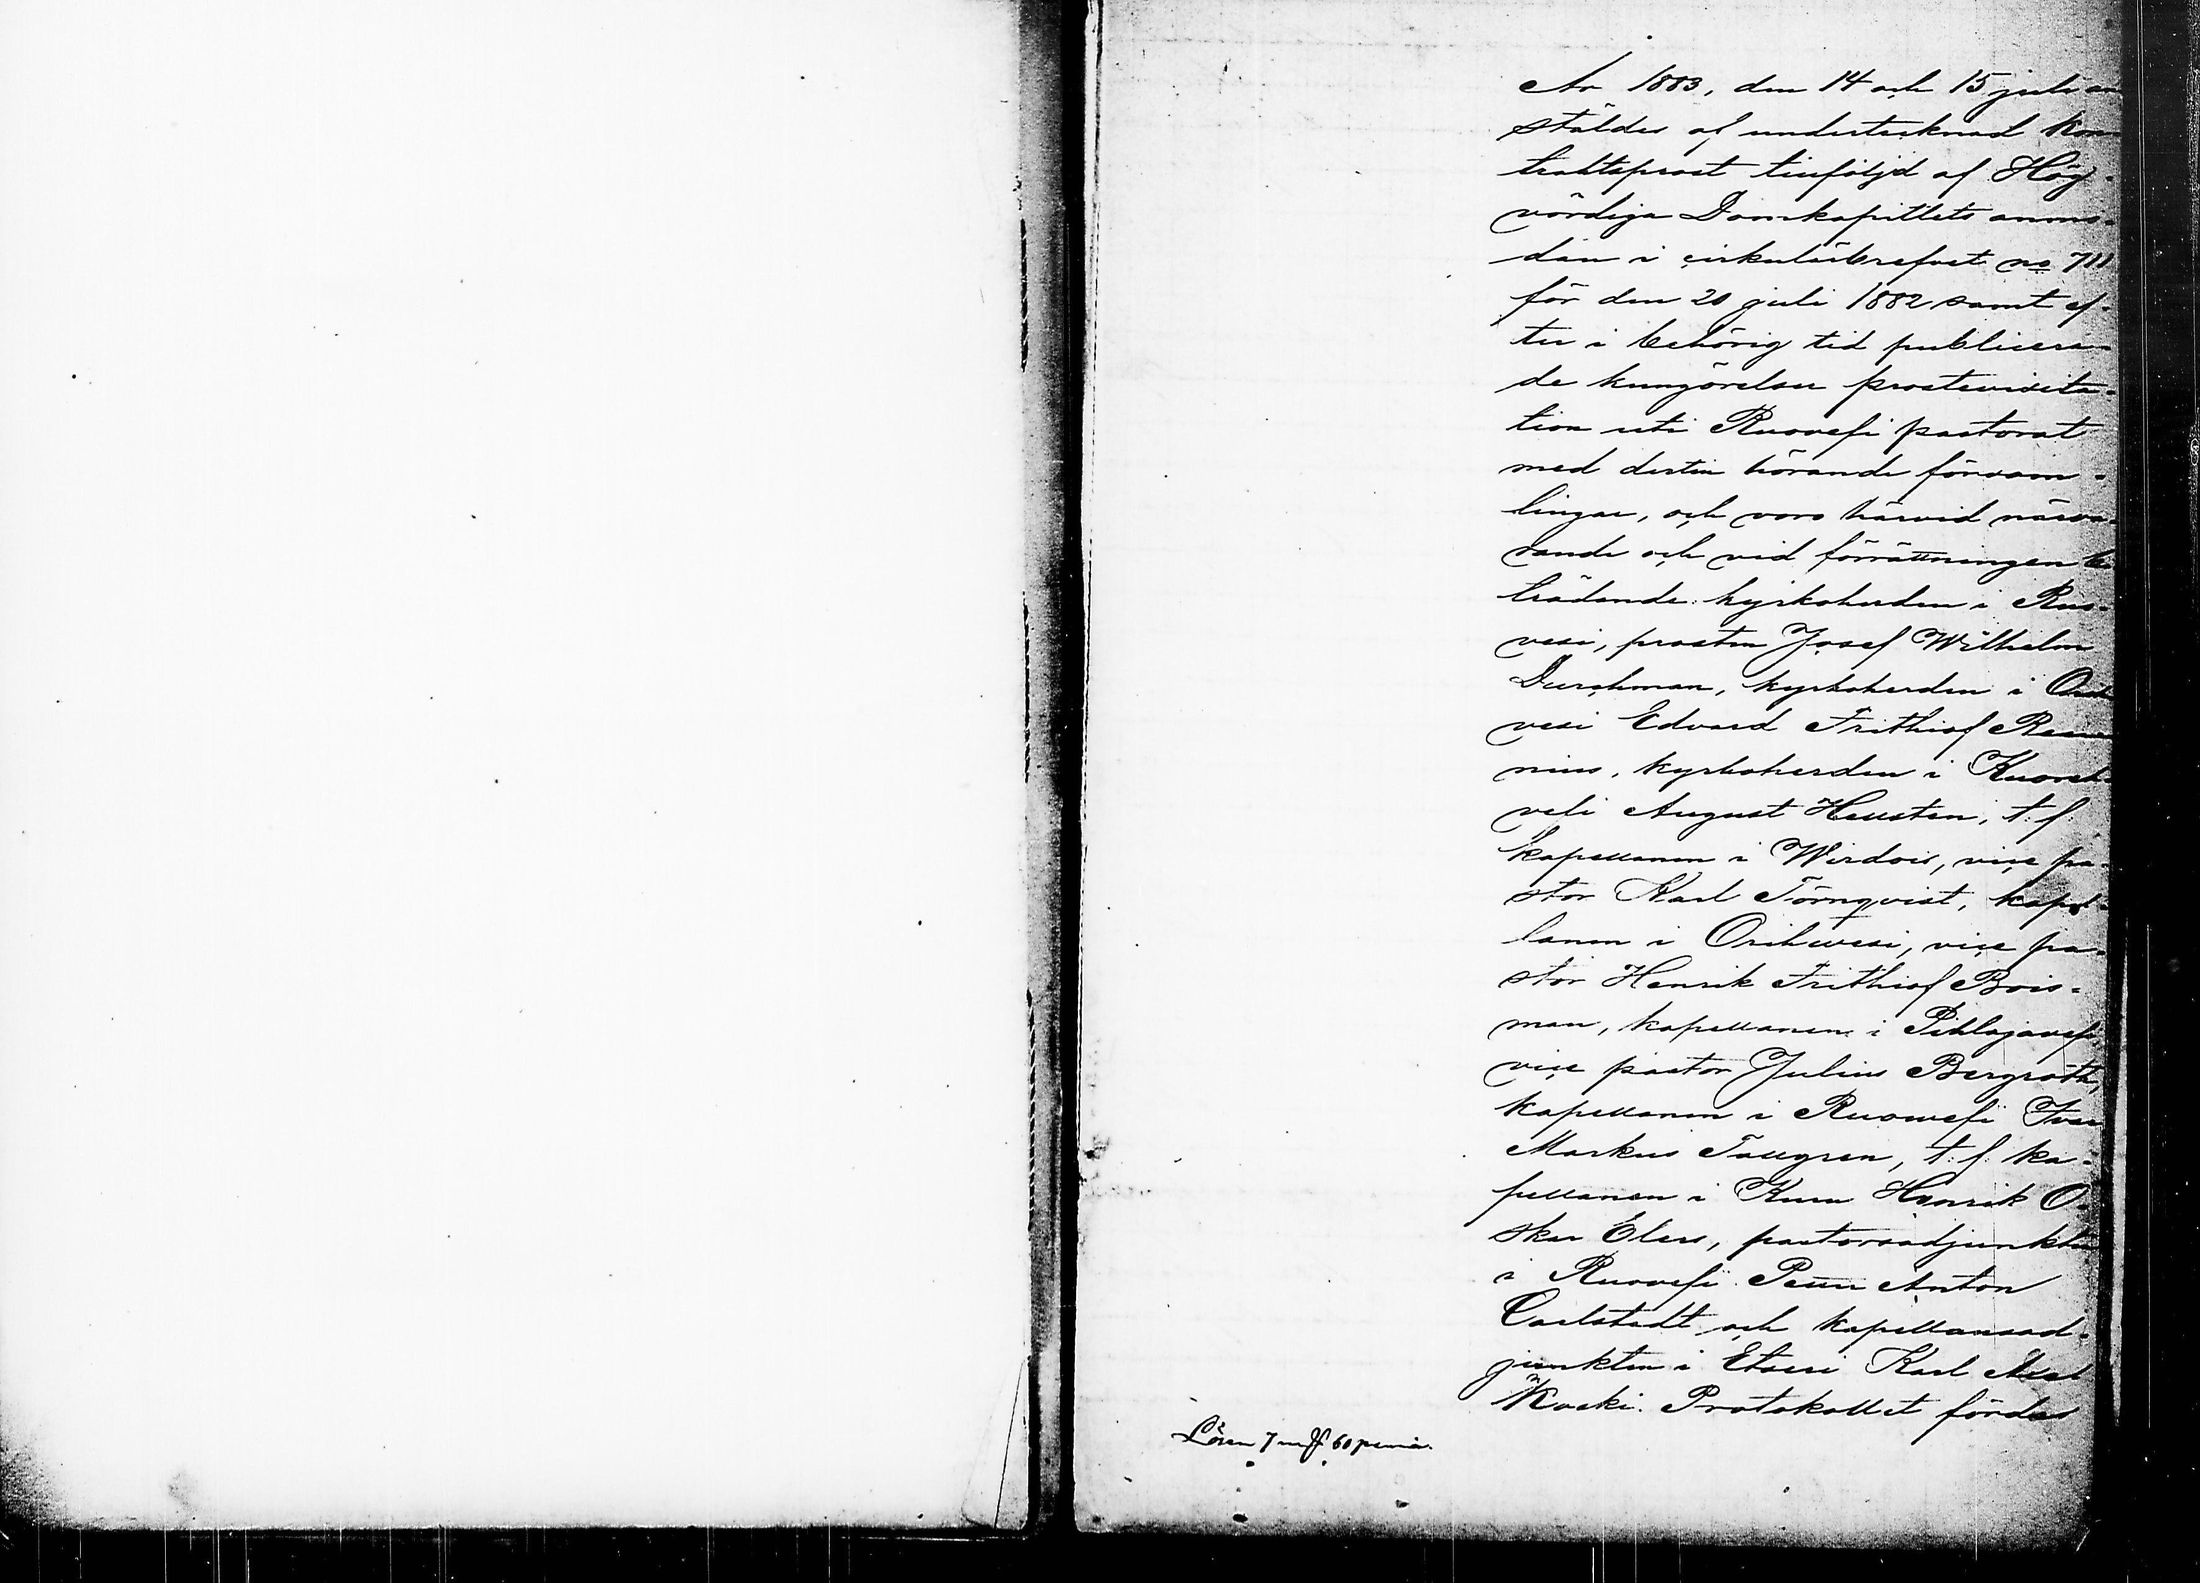 År 1883, den 14 och 15 juli an-
stäldes af undertecknad kon-
traktsprost tillföljd af Hög-
vördiga Domkapitlets anmo-
dan i cirkulärbrefvet no 711
för den 20 juli 1882 samt ef-
ter i behörig tid publicera-
de kungörelser prostevisita-
tion uti Ruovesi pastorat
med dertill hörande försam-
lingar, och voro härvid närva-
rande och vid förrättningen bi-
trädande: kyrkoherden i Ruo-
vesi, prosten Josef Wilhelm
Durchman, kyrkoherden i Ori-
vesi Edvard Frithiof
nius, kyrkoherden i Kuoreh-
vesi August Hellsten, t. f.
kapellanen i Wirdois, vice pa-
stor Karl Törnqvist, kapel-
lanen i Orihwesi, vice pa-
stor Henrik Frithiof Bois-
man, kapellanen i Pihlajavesi,
vice pastor Julius Bergroth,
kapellanen i Ruowesi Ivar
Markus Tallgren, t. f. ka-
pellanen i Kuru Henrik O-
skar Elers, pastorsadjunkten
i Ruovesi Anton
Carlstedt och kapellansad-
junkten i Etseri Karl Axel
Koski. Protokollet fördes
Lösen 7 mk 60 penniä.